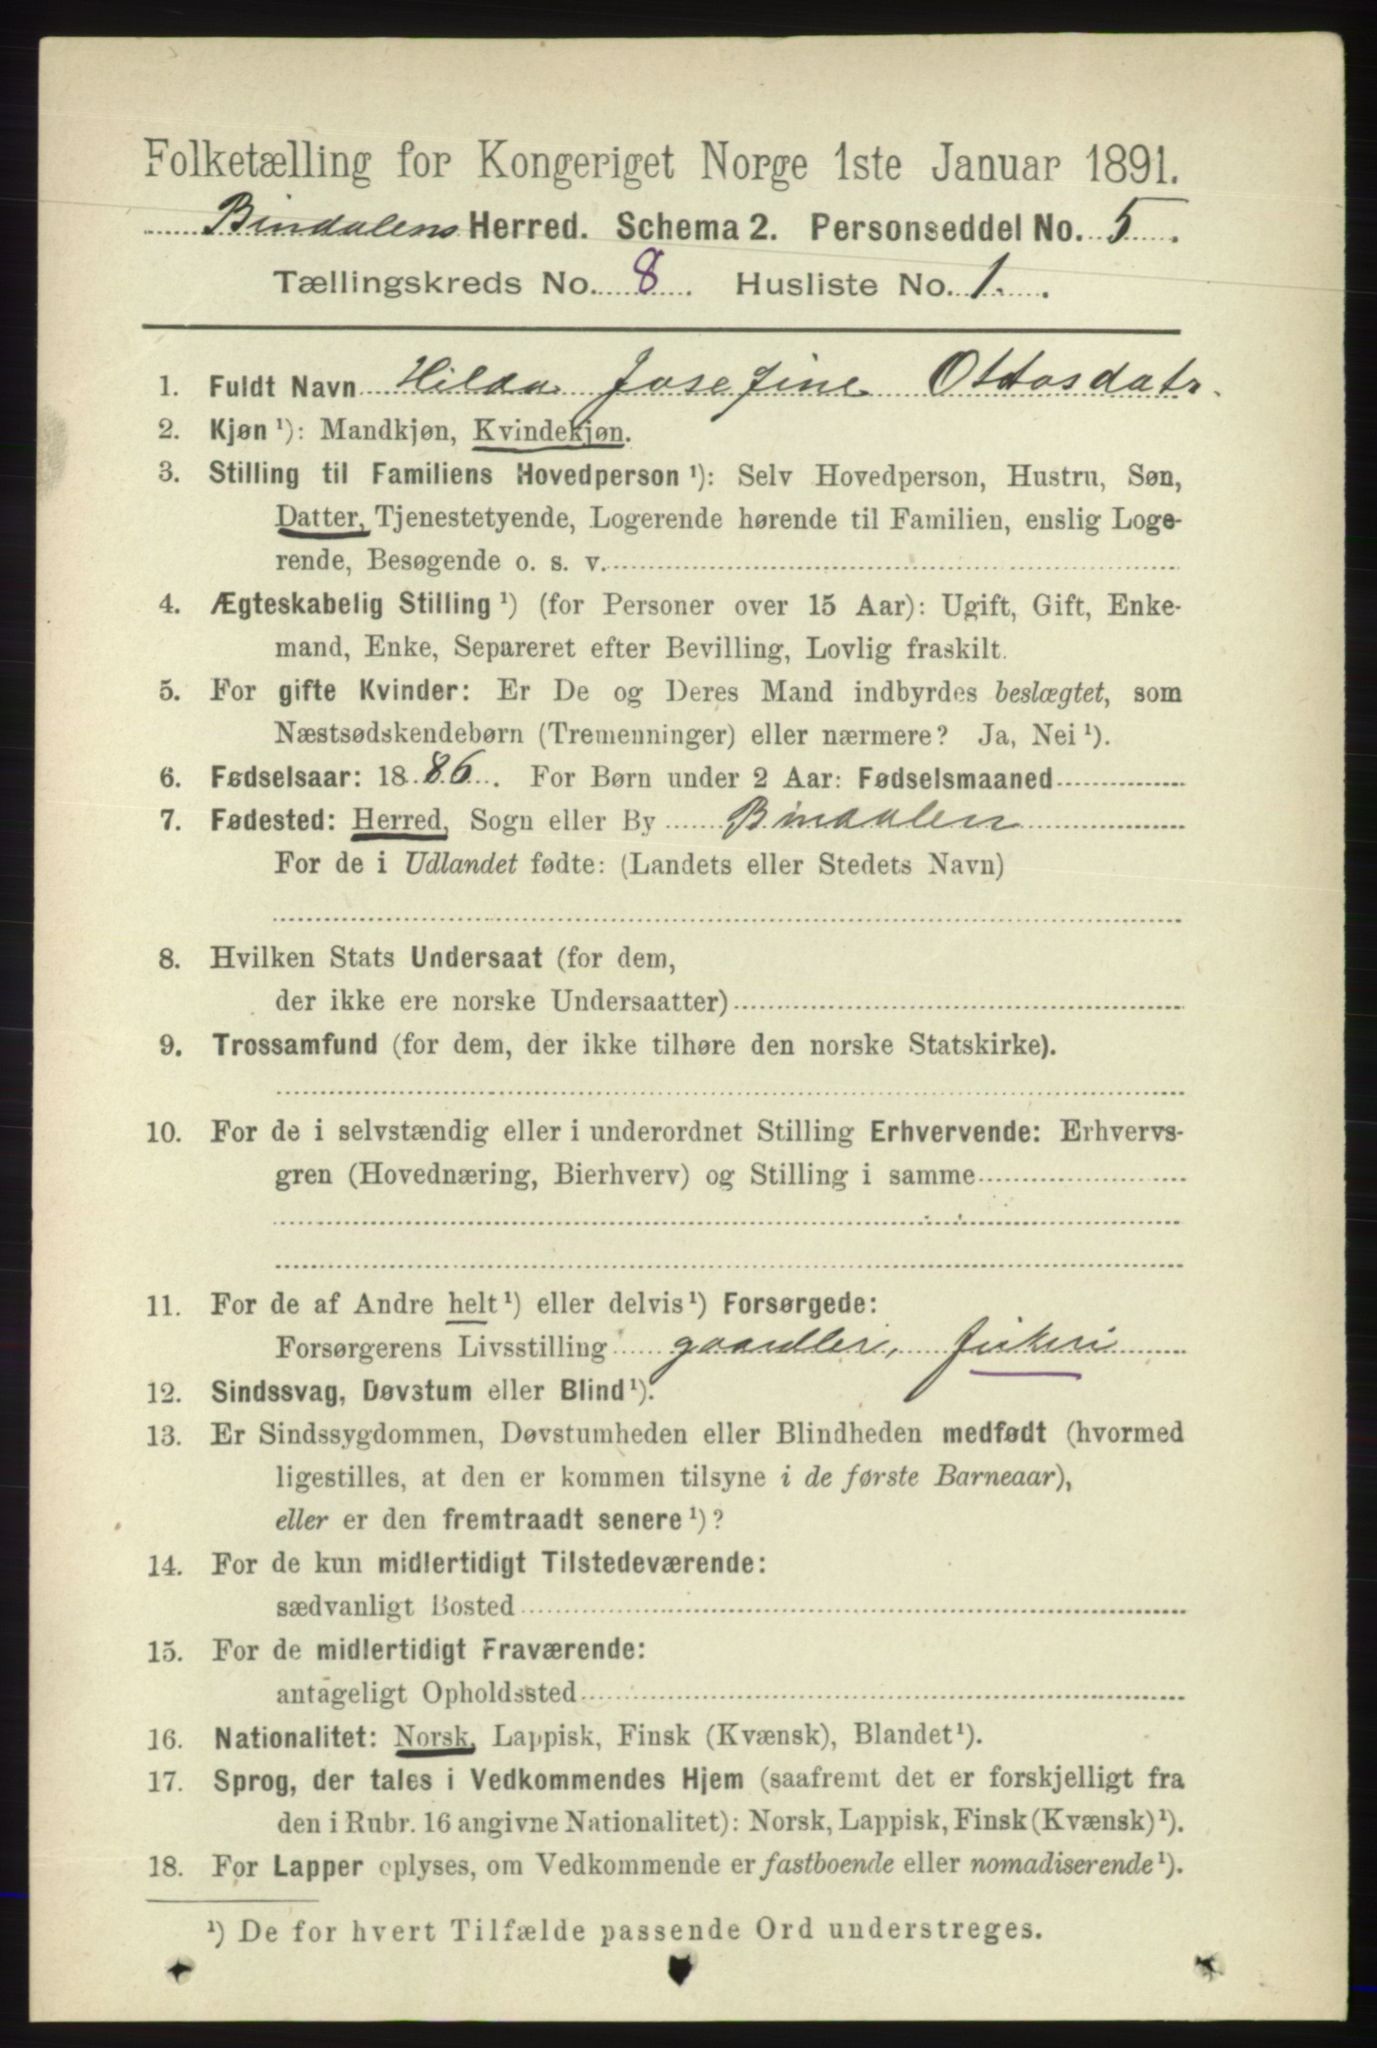 Folketælling for Kongeriget Norge 1ste Januar 1891.
Bindalens Herred. Schema 2. Personseddel No. 5.
Tællingskreds No. 8. Husliste No. 1.
1. Fuldt Navn Hilda Josefine Ottosdatr.
2. Kjøn ¹): Mandkjøn, Kvindekjøn.
3. Stilling til Familiens Hovedperson ¹): Selv Hovedperson, Hustru, Søn,
Datter, Tjenestetyende, Logerende hørende til Familien, enslig Loge-
rende, Besøgende o. s. v.
4. Ægteskabelig Stilling ¹) (for Personer over 15 Aar): Ugift, Gift, Enke-
mand, Enke, Separeret efter Bevilling, Lovlig fraskilt.
5. For gifte Kvinder: Er De og Deres Mand indbyrdes beslægtet, som
Næstsødskendebørn (Tremenninger) eller nærmere? Ja, Nei ¹).
6. Fødselsaar: 1886. For Børn under 2 Aar: Fødselsmaaned
7. Fødested: Herred, Sogn eller By Bindalen
For de i Udlandet fødte: (Landets eller Stedets Navn)
8. Hvilken Stats Undersaat (for dem,
der ikke ere norske Undersaatter)
9. Trossamfund (for dem, der ikke tilhøre den norske Statskirke).
10. For de i selvstændig eller i underordnet Stilling Erhvervende: Erhvervs-
gren (Hovednæring, Bierhverv) og Stilling i samme
11. For de af Andre helt ¹) eller delvis ¹) Forsørgede:
Forsørgerens Livsstilling
12. Sindssvag, Døvstum eller Blind ¹).
13. Er Sindssygdommen, Døvstumheden eller Blindheden medfødt (hvormed
ligestilles, at den er kommen tilsyne i de første Barneaar),
eller er den fremtraadt senere ¹)?
14. For de kun midlertidigt Tilstedeværende:
sædvanligt Bosted
15. For de midlertidigt Fraværende:
antageligt Opholdssted
16. Nationalitet: Norsk, Lappisk, Finsk (Kvænsk), Blandet ¹).
17. Sprog, der tales i Vedkommendes Hjem (saafremt det er forskjelligt fra
den i Rubr. 16 angivne Nationalitet): Norsk, Lappisk, Finsk (Kvænsk) ¹).
18. For Lapper oplyses, om Vedkommende er fastboende eller nomadiserende ¹).
¹) De for hvert Tilfælde passende Ord understreges.